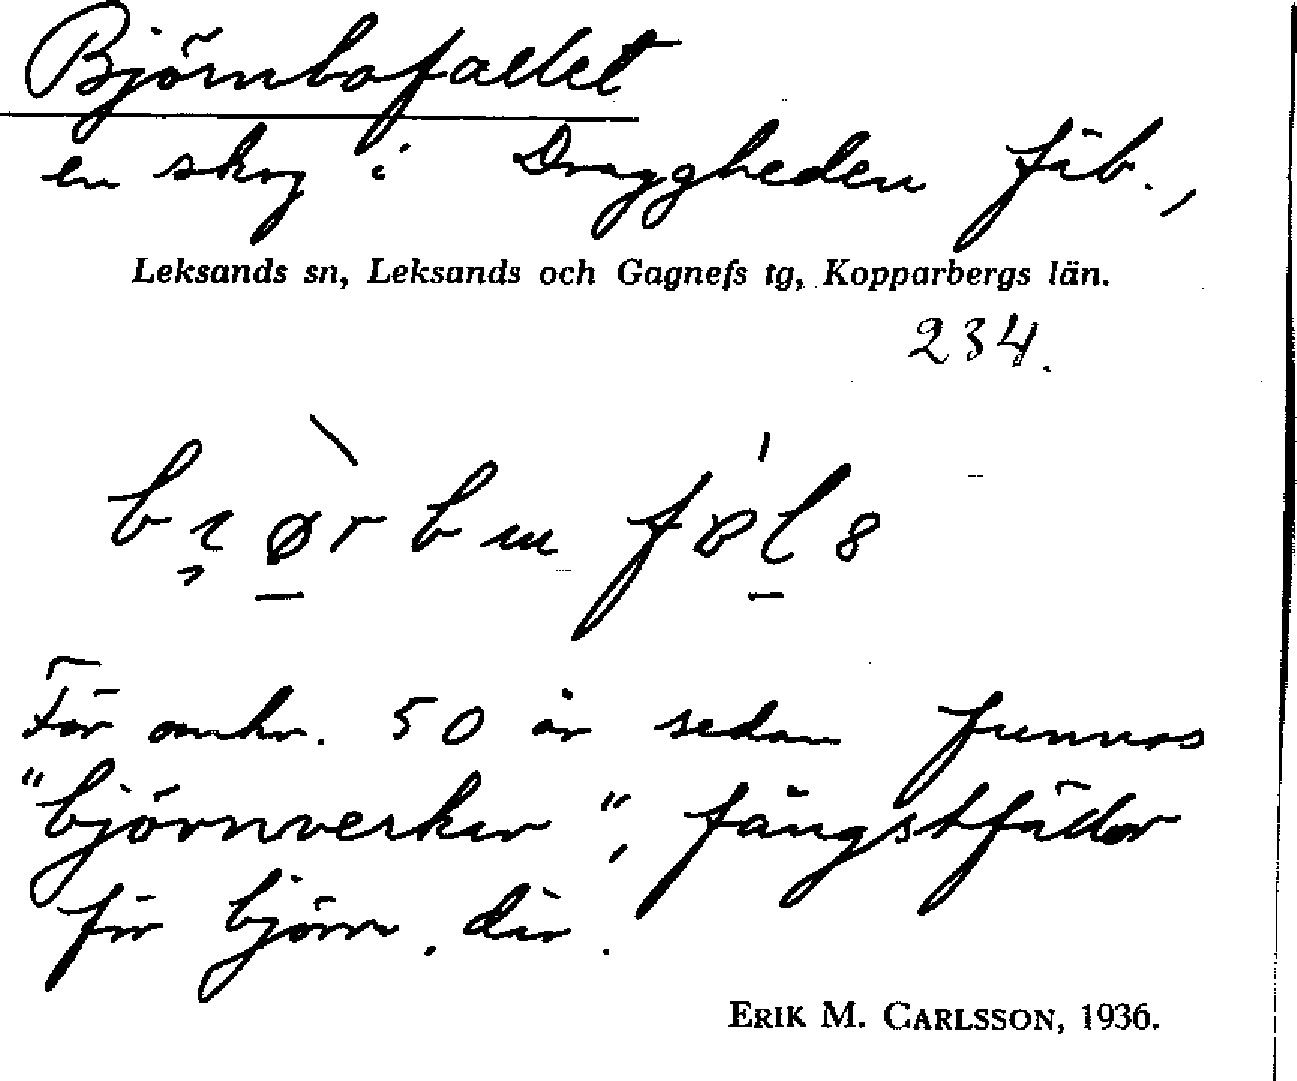 Björnbofallet
en skog i Draggheden fäb.,
Leksands sn, Leksands och Gagnefs tg, Kopparbergs län.
234.
För omkr. 50 år sedan funnos
"björnverker", fångstfållor
för björn, där.
ERIK M. CARLSSON, 1936.